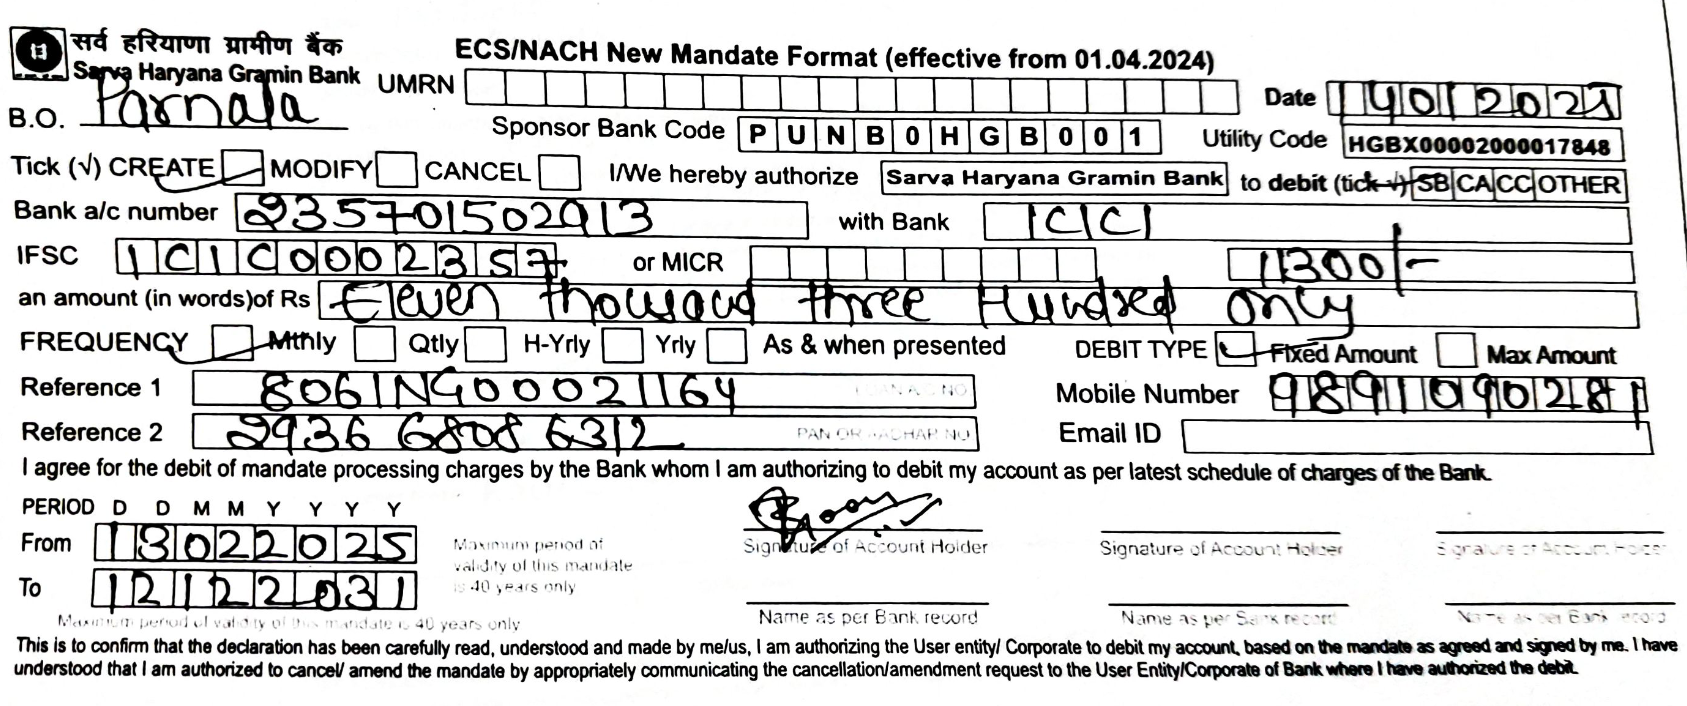 सर्व हरियाणा ग्रामीण बैंक
Sarva Haryana Gramin Bank
ECS/NACH New Mandate Format (effective from 01.04.2024)
UMRN
Date 1401202
B.O. Parnala
Sponsor Bank Code PUNB0HGB001
Utility Code HGBX00002000017848
Tick (√) CREATE MODIFY CANCEL I/We hereby authorize Sarva Haryana Gramin Bank to debit (tick √) SB CA CC OTHER
Bank a/c number 235701502913 with Bank ICICI
IFSC ICIC0002357 or MICR 11300/-
an amount (in words)of Rs Eleven thousand three Hundred only
FREQUENCY Mthly Qtly H-Yrly Yrly As & when presented DEBIT TYPE Fixed Amount Max Amount
Reference 1 8061NG00021164 LOAN A/C NO Mobile Number 9891090281
Reference 2 2936 6808 6312 PAN OR AADHAR NO Email ID
I agree for the debit of mandate processing charges by the Bank whom I am authorizing to debit my account as per latest schedule of charges of the Bank.
PERIOD D D M M Y Y Y Y
From 13022025
To 12122031
Maximum period of
validity of this mandate
is 40 years only
Maximum period of validity of this mandate is 40 years only
Signature of Account Holder Signature of Account Holder Signature of Account Holder
Name as per Bank record Name as per Bank record Name as per Bank record
This is to confirm that the declaration has been carefully read, understood and made by me/us, I am authorizing the User entity/ Corporate to debit my account, based on the mandate as agreed and signed by me. I have
understood that I am authorized to cancel/ amend the mandate by appropriately communicating the cancellation/amendment request to the User Entity/Corporate of Bank where I have authorized the debit.